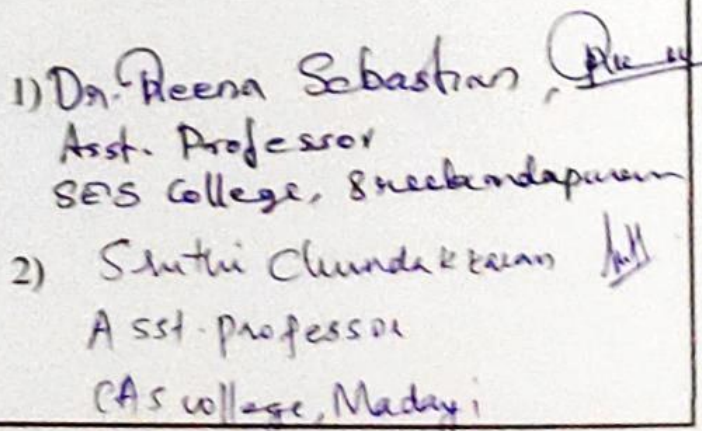 1) Dr. Reena Sebastian,
Asst. Professor
SES College, Sreekandapuram
2) Sruthi Chundakkaran
Asst. professor
CAS college, Madayi